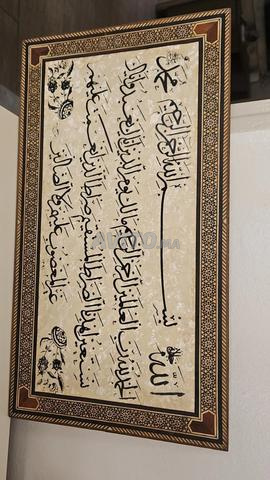 الله بسم الله الرحمن الرحيم محمد
الحمد لله رب العالمين الرحمن الرحيم مالك يوم الدين إياك نعبد وإياك
نستعين اهدنا الصراط المستقيم صراط الذين أنعمت عليهم
غير المغضوب عليهم ولا الضالين
AVITO.ma